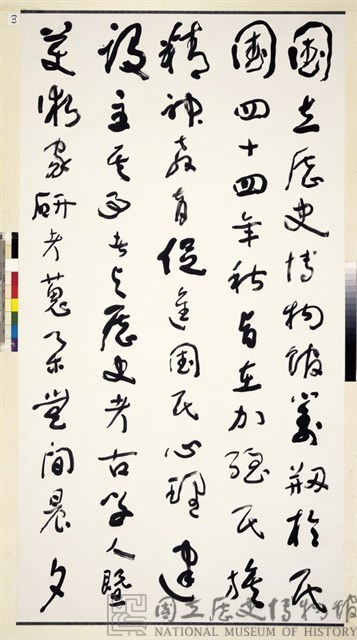 國立歷史博物館剏於民
國四十四年秋旨在加強民族
精神教育促進國民心理建
設主其事者與歷史考古學人暨
美術家研考蒐間晨夕
國立歷史博物館
NATIONAL MUSEUM OF HISTORY